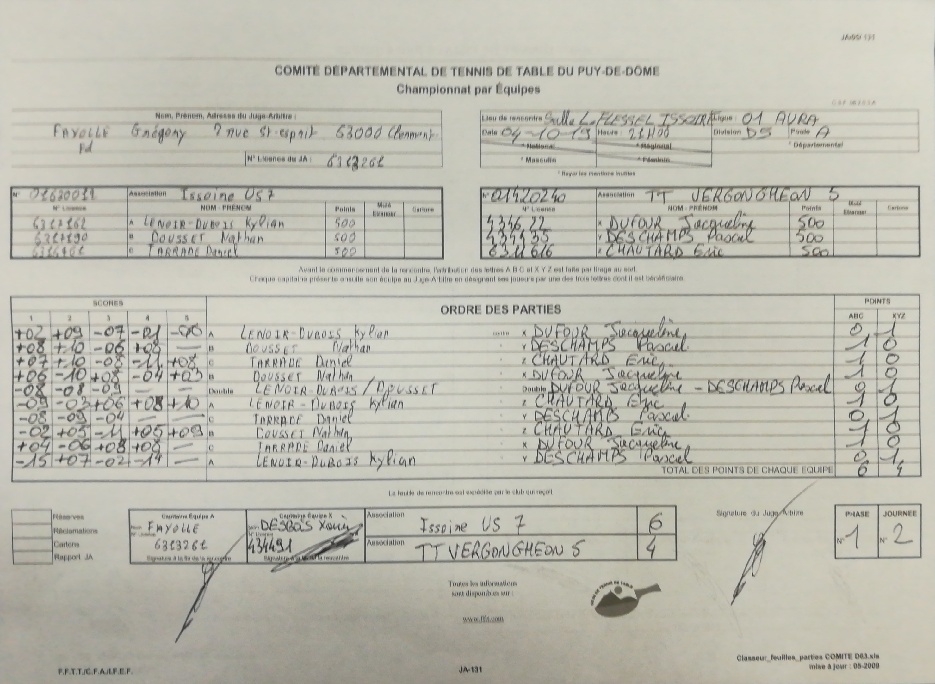 JA-99/131
COMITE DEPARTEMENTAL DE TENNIS DE TABLE DU PUY-DE-DOME
Championnat par Équipes
Nom, Prénom, Adresse du Juge-Arbitre :
FAYOLLE Grégory 7 rue St-esprit 63000 Clermont-
Fd
N° Licence du JA : 6313261
Lieu de rencontre Salle La FLESSEL ISSOIRE Ligue : 01 AURA
Date 04-10-19 Heure : 21H00 Division D5 Poule A
* National * Régional * Départemental
* Masculin * Féminin
* Rayer les mentions inutiles
N° 01630011 Association Issoire US 7
N° Licence NOM - PRÉNOM Points Muté Etranger Cartons
A LENOIR-DUBOIS Kylian 500
B DOUSSET Nathan 500
C TARRADE Daniel 500
N° 01420240 Association TT VERGONGHEON 5
N° Licence NOM - PRÉNOM Points Muté Etranger Cartons
X DUFOUR Jacqueline 500
Y DESCHAMPS Pascal 500
Z CHAUTARD Eric 500
Avant le commencement de la rencontre, l'attribution des lettres A B C et X Y Z est faite par tirage au sort.
Chaque capitaine présente ensuite son équipe au Juge-Arbitre en désignant ses joueurs par une des trois lettres dont il est bénéficiaire.
SCORES ORDRE DES PARTIES POINTS
1 2 3 4 5 ABC XYZ
+02 +09 -07 -01 A LENOIR-DUBOIS Kylian contre X DUFOUR Jacqueline 0 1
+08 +10 -06 +06 — B DOUSSET Nathan Y DESCHAMPS Pascal 1 0
+07 +10 -08 -11 +08 C TARRADE Daniel Z CHAUTARD Eric 1 0
+06 -10 +08 -04 +03 B DOUSSET Nathan X DUFOUR Jacqueline 1 0
-08 -08 -09 — — Double LENOIR-DUBOIS / DOUSSET Double DUFOUR Jacqueline - DESCHAMPS Pascal 0 1
-09 -03 +06 +08 +10 A LENOIR-DUBOIS Kylian Z CHAUTARD Eric 1 0
-08 -09 -04 — — C TARRADE Daniel Y DESCHAMPS Pascal 0 1
-02 +05 -11 +05 +09 B DOUSSET Nathan Z CHAUTARD Eric 1 0
+04 -06 +08 +08 — C TARRADE Daniel X DUFOUR Jacqueline 1 0
-15 +07 -02 -14 — A LENOIR-DUBOIS Kylian Y DESCHAMPS Pascal 0 1
TOTAL DES POINTS DE CHAQUE EQUIPE 6 4
La feuille de rencontre est expédiée par le club
Réserves
Réclamations
Cartons
Rapport JA
Capitaine Équipe A
Nom FAYOLLE
N° Licence 6313261
Signature à la fin de la rencontre
Capitaine Équipe X
Nom DESBOIS
N° Licence 434491
Signature à la fin de la rencontre
Association Issoire US 7 6
Association TT VERGONGHEON 5 4
Signature du Juge-Arbitre
PHASE JOURNÉE
N° 1 N° 2
Toutes les informations
sont disponibles sur :
www.fftt.com
F.F.T.T./C.F.A./I.F.E.F.
JA-131
Classeur:_feuilles_parties COMITE D63.xls
mise à jour : 05-2009